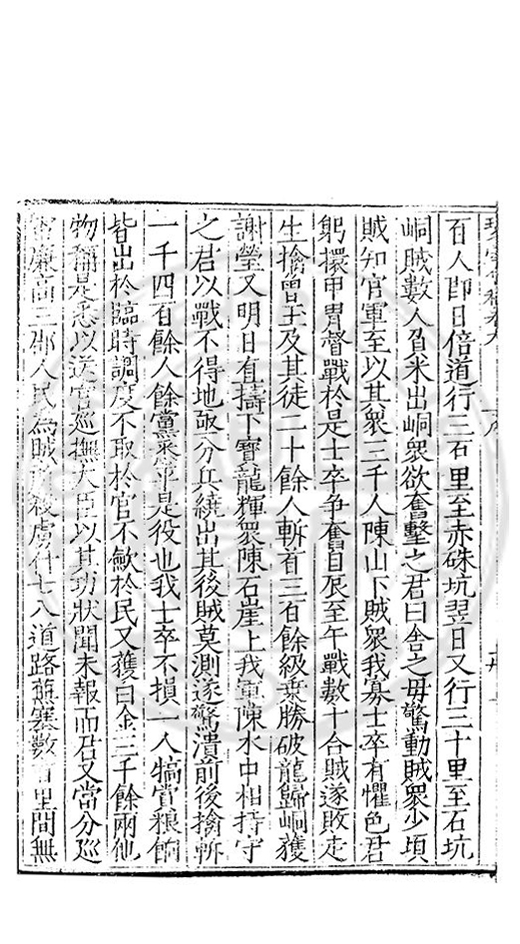 百人卽日倍道行三百里至赤硃坑翌日又行三十里至石坑
峒賊數人負米出峒衆欲奮擊之君曰舍之毋驚動賊衆少頃
賊知官軍至以其衆三千人陳山下賊衆我寡士卒有懼色君
躬擐甲冑督戰於是士卒争奮自辰至午戰數十合賊遂敗走
生擒曽王及其徒二十餘人斬首三百餘級乗勝破龍歸峒獲
謝瑩又明日直擣下寶龍輝衆陳石崖上我軍陳水中相持守
之君以戰不得地乃分兵繞出其後賊莫測遂驚潰前後擒斬
一千四百餘人餘黨悉平是役也我士卒不損一人犒賞粮餉
皆出於臨時調度不取於官不歛於民又獲白金三千餘兩他
物稱是悉以送官巡撫大臣以其功狀聞未報而君又當分巡
廉高三郡人民爲賊所殺虜什七八道路蕪塞數百里間無